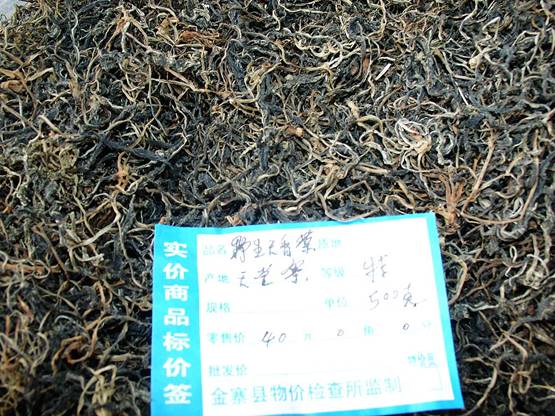 实价商品标价签
品名 野生天香菜 质地
产地 天堂寨 等级 特
规格 单位 500克
零售价 40 元 0 角 0 分
批发价
金寨县物价检查所监制